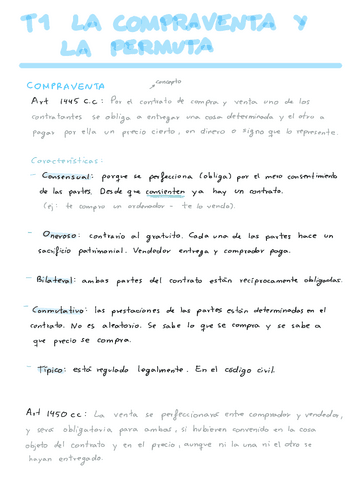 T1 LA COMPRAVENTA Y
LA PERMUTA
concepto
COMPRAVENTA
Art 1445 C.C: Por el contrato de compra y venta uno de los
contratantes se obliga a entregar una cosa determinada y el otro a
pagar por ella un precio cierto, en dinero o signo que lo represente.
Características:
- Consensual: porque se perfecciona (obliga) por el mero consentimiento
de las partes. Desde que consienten ya hay un contrato.
(ej: te compro un ordenador - te lo vendo).
- Oneroso: contrario al gratuito. Cada una de las partes hace un
sacrificio patrimonial. Vendedor entrega y comprador paga.
- Bilateral: ambas partes del contrato están recíprocamente obligadas.
- Conmutativo: las prestaciones de las partes están determinadas en el
contrato. No es aleatorio. Se sabe lo que se compra y se sabe a
que precio se compra.
- Típico: está regulado legalmente. En el código civil.
Art 1450 CC: La venta se perfeccionará entre comprador y vendedor,
y será obligatoria para ambos, si hubieren convenido en la cosa
objeto del contrato y en el precio, aunque ni la una ni el otro se
hayan entregado.